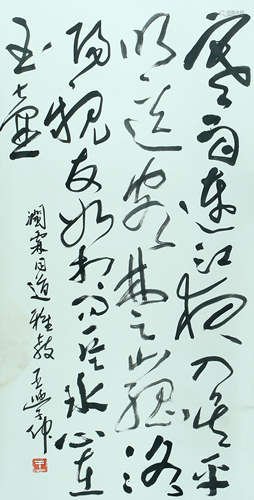 寒雨連江夜入吳平
明送客楚山孤洛
陽親友如相問一片冰心在
玉壺
霖同道雅教 王